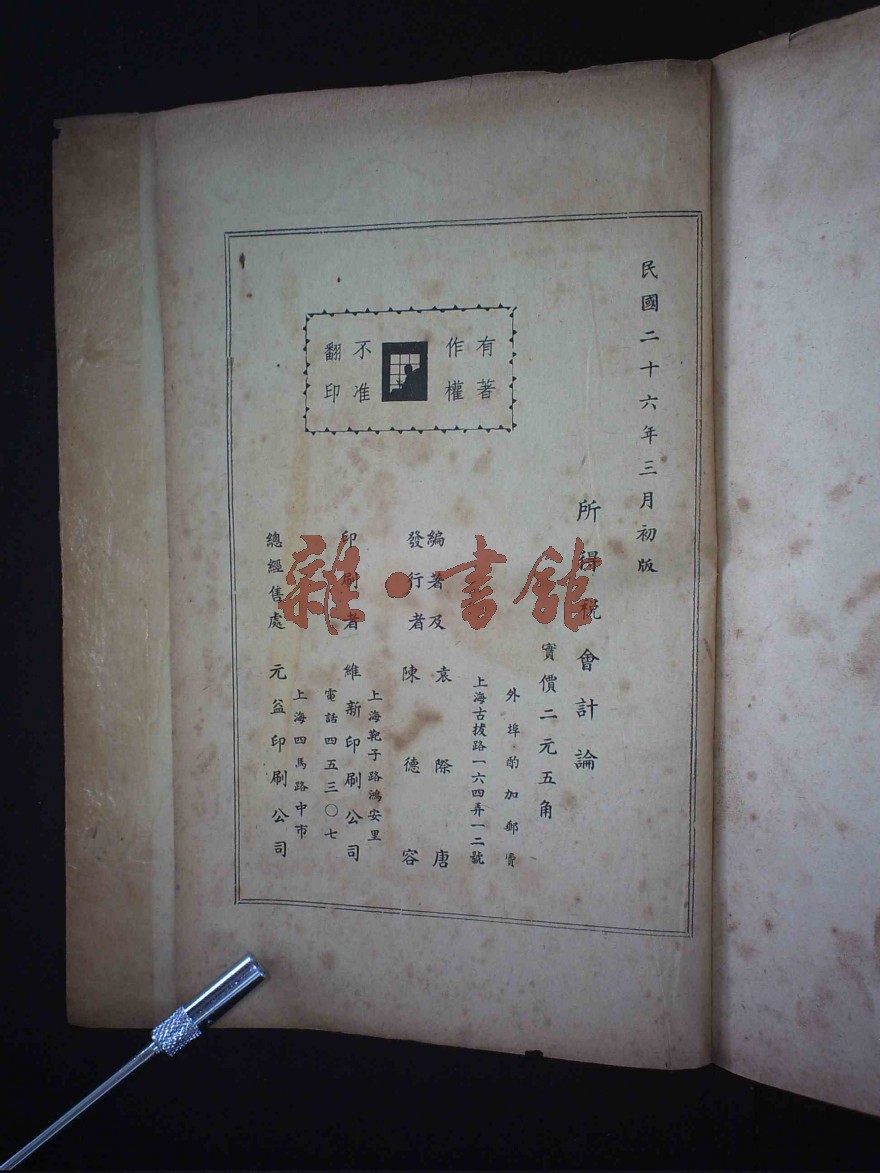 民國二十六年三月初版
有著
作權
不准
翻印
所得稅會計論
實價二元五角
外埠酌加郵費
上海古拔路一六四弄一二號
編著及
發行者
袁際唐
陳德容
上海靶子路鴻安里
印刷者 維新印刷公司
電話四五三〇七
上海四馬路中市
總經售處 元益印刷公司
雜·書館